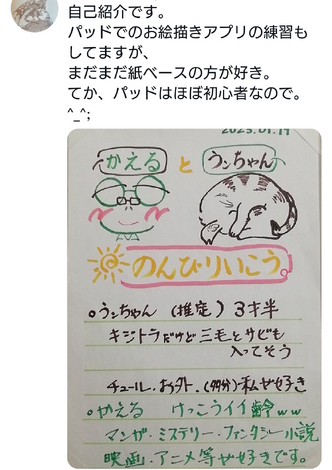 自己紹介です。
パッドでのお絵描きアプリの練習も
してますが、
まだまだ紙ベースの方が好き。
てか、パッドはほぼ初心者なので。
^_^;
2025.01.19
かえる と うンちゃん
のんびりいこう。
○うンちゃん (推定) 3才半
キジトラだけど三毛とサビも
入ってそう
チュール・お外・(多分)私が好き
○かえる けっこうイイ齢ww
マンガ・ミステリー・ファンタジー小説
映画・アニメ等が好きです。